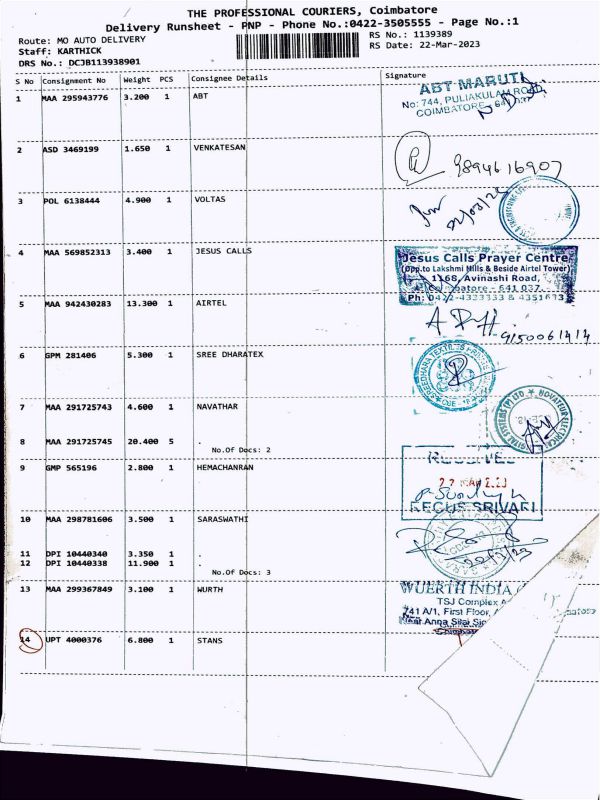 THE PROFESSIONAL COURIERS, Coimbatore
Delivery Runsheet - PNP - Phone No.:0422-3505555 - Page No.:1
Route: MO AUTO DELIVERY
RS No.: 1139389
Staff: KARTHICK
RS Date: 22-Mar-2023
DRS No.: DCJB113938901
S No Consignment No Weight PCS Consignee Details Signature
1 MAA 295943776 3.200 1 ABT
ABT MARUTI
No: 744, PULIAKULAM ROAD
COIMBATORE
2 ASD 3469199 1.650 1 VENKATESAN
9894616907
3 POL 6138444 4.900 1 VOLTAS
4 MAA 569852313 3.400 1 JESUS CALLS
Jesus Calls Prayer Centre
(Opp.to Lakshmi Mills & Beside Airtel Tower)
1168, Avinashi Road,
Coimbatore - 641 037.
Ph: 0422-4323333 & 4351673
5 MAA 942430283 13.300 1 AIRTEL
9150061414
6 GPM 281406 5.300 1 SREE DHARATEX
7 MAA 291725743 4.600 1 NAVATHAR
8 MAA 291725745 20.400 5 .
No.Of Docs: 2
9 GMP 565196 2.800 1 HEMACHANRAN
RECEIVED
22 MAR 2023
RECUS SRIVARI
10 MAA 298781606 3.500 1 SARASWATHI
22/3/23
11 DPI 10440340 3.350 1 .
12 DPI 10440338 11.900 1 .
No.Of Docs: 3
13 MAA 299367849 3.100 1 WURTH
WUERTH INDIA
TSJ Complex
741 A/1, First Floor,
Near Anna Silai Sig
14 UPT 4000376 6.800 1 STANS